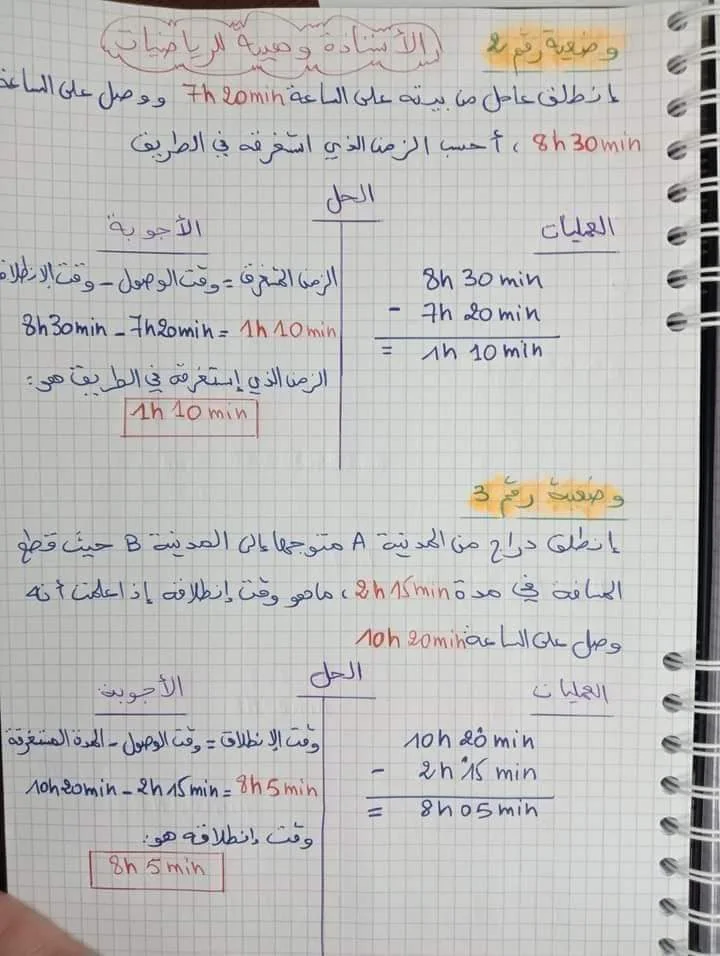 وضعية رقم 2
الأستاذة وهيبة للرياضيات
إنطلق عامل من بيته على الساعة 7h 20min ووصل على الساعة
8h 30min ، أحسب الزمن الذي استغرقه في الطريق
الحل
العمليات
8h 30 min
- 7h 20 min
= 1h 10 min
الأجوبة
الزمن المستغرق = وقت الوصول - وقت الإنطلاق
8h30min - 7h20min = 1h 10min
الزمن الذي إستغرقه في الطريق هو:
1h 10 min
وضعية رقم 3
إنطلق دراج من المدينة A متوجها إلى المدينة B حيث قطع
المسافة في مدة 2h 15min ، ماهو وقت إنطلاقه إذا علمت أنه
وصل على الساعة 10h 20min
الحل
العمليات
10h 20 min
- 2h 15 min
= 8h 05 min
الأجوبة
وقت الإنطلاق = وقت الوصول - المدة المستغرقة
10h20min - 2h15min = 8h5min
وقت إنطلاقه هو:
8h 5 min